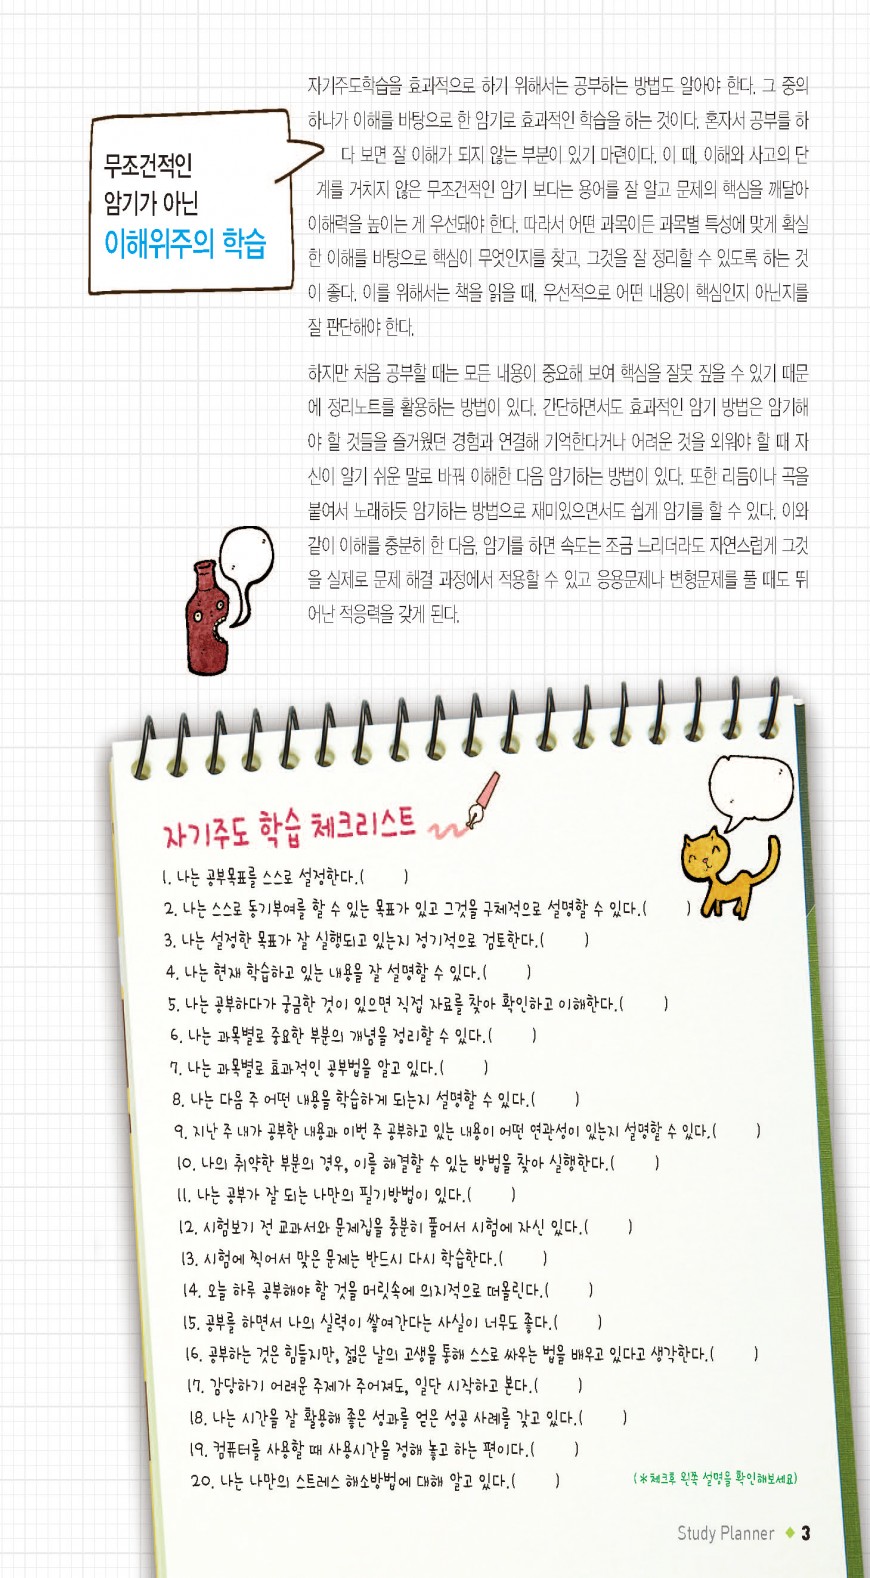 무조건적인
암기가 아닌
이해위주의 학습
자기주도학습을 효과적으로 하기 위해서는 공부하는 방법도 알아야 한다. 그 중의
하나가 이해를 바탕으로 한 암기로 효과적인 학습을 하는 것이다. 혼자서 공부를 하
다 보면 잘 이해가 되지 않는 부분이 있기 마련이다. 이 때, 이해와 사고의 단
계를 거치지 않은 무조건적인 암기 보다는 용어를 잘 알고 문제의 핵심을 깨달아
이해력을 높이는 게 우선돼야 한다. 따라서 어떤 과목이든 과목별 특성에 맞게 확실
한 이해를 바탕으로 핵심이 무엇인지를 찾고, 그것을 잘 정리할 수 있도록 하는 것
이 좋다. 이를 위해서는 책을 읽을 때, 우선적으로 어떤 내용이 핵심인지 아닌지를
잘 판단해야 한다.
하지만 처음 공부할 때는 모든 내용이 중요해 보여 핵심을 잘못 짚을 수 있기 때문
에 정리노트를 활용하는 방법이 있다. 간단하면서도 효과적인 암기 방법은 암기해
야 할 것들을 즐거웠던 경험과 연결해 기억한다거나 어려운 것을 외워야 할 때 자
신이 알기 쉬운 말로 바꿔 이해한 다음 암기하는 방법이 있다. 또한 리듬이나 곡을
붙여서 노래하듯 암기하는 방법으로 재미있으면서도 쉽게 암기를 할 수 있다. 이와
같이 이해를 충분히 한 다음, 암기를 하면 속도는 조금 느리더라도 자연스럽게 그것
을 실제로 문제 해결 과정에서 적용할 수 있고 응용문제나 변형문제를 풀 때도 뛰
어난 적응력을 갖게 된다.
자기주도 학습 체크리스트
1. 나는 공부목표를 스스로 설정한다.( )
2. 나는 스스로 동기부여를 할 수 있는 목표가 있고 그것을 구체적으로 설명할 수 있다.( )
3. 나는 설정한 목표가 잘 실행되고 있는지 정기적으로 검토한다.( )
4. 나는 현재 학습하고 있는 내용을 잘 설명할 수 있다.( )
5. 나는 공부하다가 궁금한 것이 있으면 직접 자료를 찾아 확인하고 이해한다.( )
6. 나는 과목별로 중요한 부분의 개념을 정리할 수 있다.( )
7. 나는 과목별로 효과적인 공부법을 알고 있다.( )
8. 나는 다음 주 어떤 내용을 학습하게 되는지 설명할 수 있다.( )
9. 지난 주 내가 공부한 내용과 이번 주 공부하고 있는 내용이 어떤 연관성이 있는지 설명할 수 있다.( )
10. 나의 취약한 부분의 경우, 이를 해결할 수 있는 방법을 찾아 실행한다.( )
11. 나는 공부가 잘 되는 나만의 필기방법이 있다.( )
12. 시험보기 전 교과서와 문제집을 충분히 풀어서 시험에 자신 있다.( )
13. 시험에 찍어서 맞은 문제는 반드시 다시 학습한다.( )
14. 오늘 하루 공부해야 할 것을 머릿속에 의지적으로 떠올린다.( )
15. 공부를 하면서 나의 실력이 쌓여간다는 사실이 너무도 좋다.( )
16. 공부하는 것은 힘들지만, 젊은 날의 고생을 통해 스스로 싸우는 법을 배우고 있다고 생각한다.( )
17. 감당하기 어려운 주제가 주어져도, 일단 시작하고 본다.( )
18. 나는 시간을 잘 활용해 좋은 성과를 얻은 성공 사례를 갖고 있다.( )
19. 컴퓨터를 사용할 때 사용시간을 정해 놓고 하는 편이다.( )
20. 나는 나만의 스트레스 해소방법에 대해 알고 있다.( )
(*체크후 왼쪽 설명을 확인해보세요)
Study Planner ◆ 3